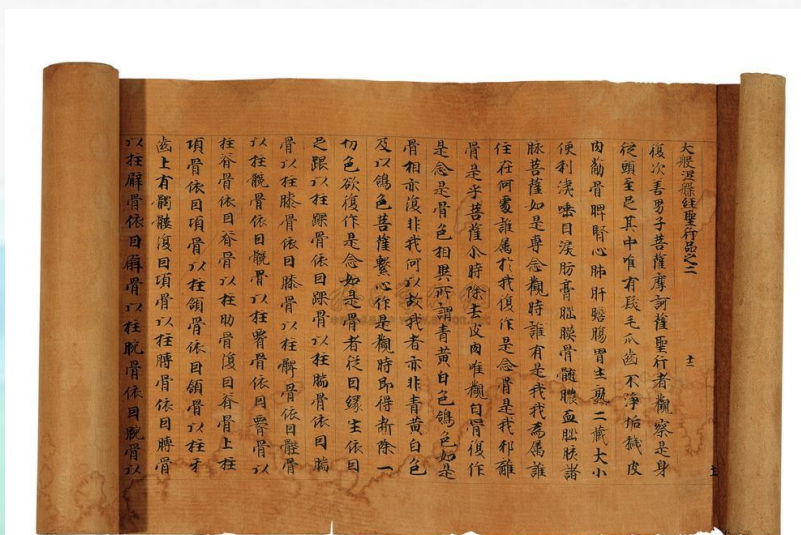 大般涅槃経聖行品之二 十二
復次善男子菩薩摩訶薩聖行者觀察是身
從頭至足其中唯有髮毛爪齒不淨垢穢皮
肉筋骨脾腎心肺肝膽腸胃生熟二藏大小
便利涕唾目淚肪膏腦膜骨髓膿血腦胲諸
脉菩薩如是專念觀時誰有是我我為屬誰
住在何處誰属於我復作是念骨是我耶離
骨是乎菩薩尒時除去皮肉唯觀白骨復作
是念是骨色相異所謂青黃白色鴿色如是
骨相亦復非我何以故我者亦非青黃白色
及以鴿色菩薩繫心作是觀時即得斷除一
切色欲復作是念如是骨者從囙緣生依囙
足跟以柱踝骨依囙踝骨以柱腨骨依囙腨
骨以柱膝骨依囙膝骨以柱髀骨依囙髀骨
以柱髖骨依囙髖骨以柱骨依囙骨以
柱脊骨依囙脊骨以柱肋骨復囙脊骨上柱
項骨依囙項骨以柱頷骨依囙頷骨以柱牙
齒上有髑髏復囙項骨以柱膊骨依囙膊骨
以柱臂骨依囙臂骨以柱腕骨依囙腕骨以